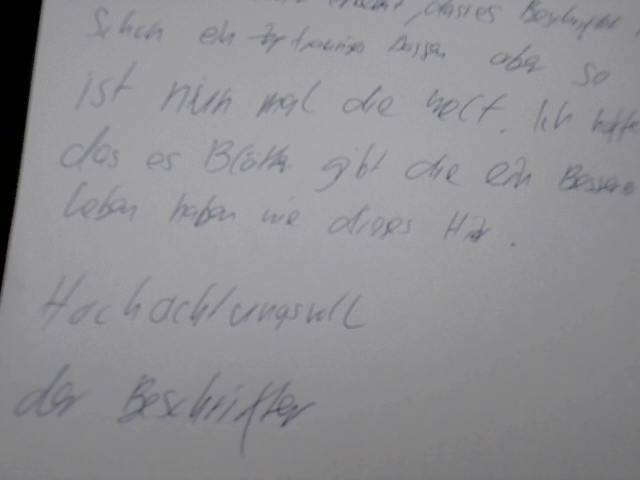 dass es Beschriftet
Schon ein trauriges Dassein aber so
ist nun mal die welt. Ich hoffe
das es Blätter gibt die ein Besseres
leben haben wie dieses Hier.
Hochachtungsvoll
der Beschrifter